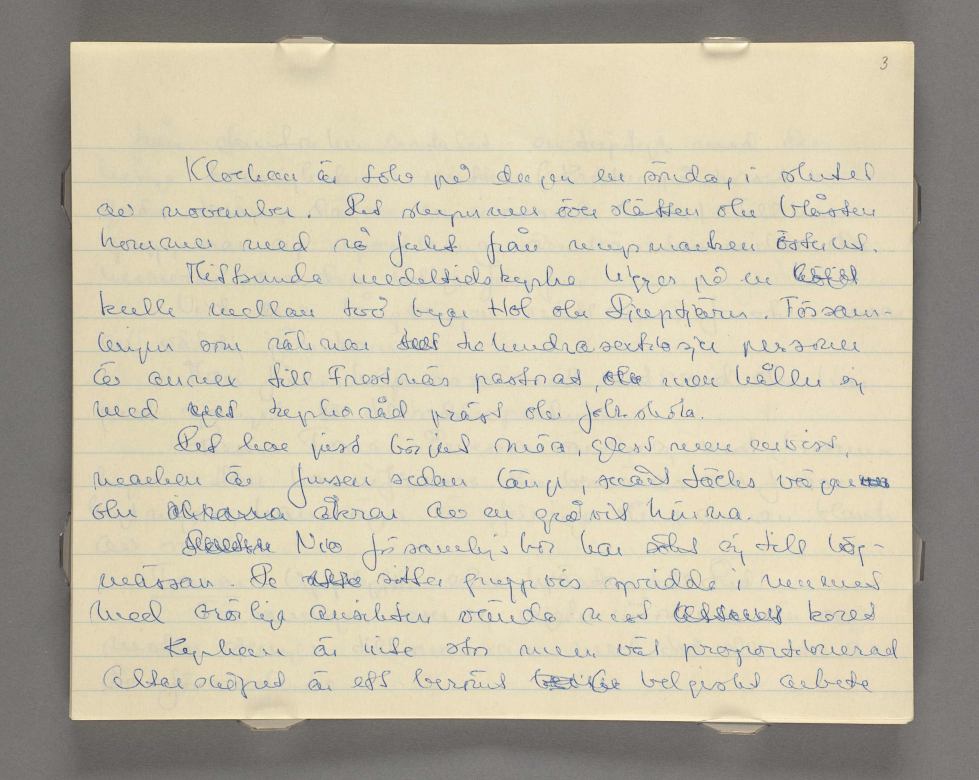 3
Klockan är tolv på dagen en söndag i slutet
av november. Det skymmer över slätten och blåsten
kommer med rå fukt från myrmarken österut.
Mittsunda medeltidskyrka ligger på en
kulle mellan två byar Hol och Djuptjärn. Försam-
lingen som räknar trehundrasextiosju personer
är annex till Frostnäs pastorat, men håller sig
med kyrkoråd präst och folkskola.
Det har just börjat snöa, glest men envist,
marken är frusen sedan länge, snart täcks vägen
och åkrar av en gråvit hinna.
Nio församlingsbor har sökt sig till hög-
mässan. De sitter gruppvis spridda i rummet
med orörliga ansikten vända mot koret
Kyrkan är inte stor men väl proportionerad
Altarskåpet är ett berömt belgiskt arbete